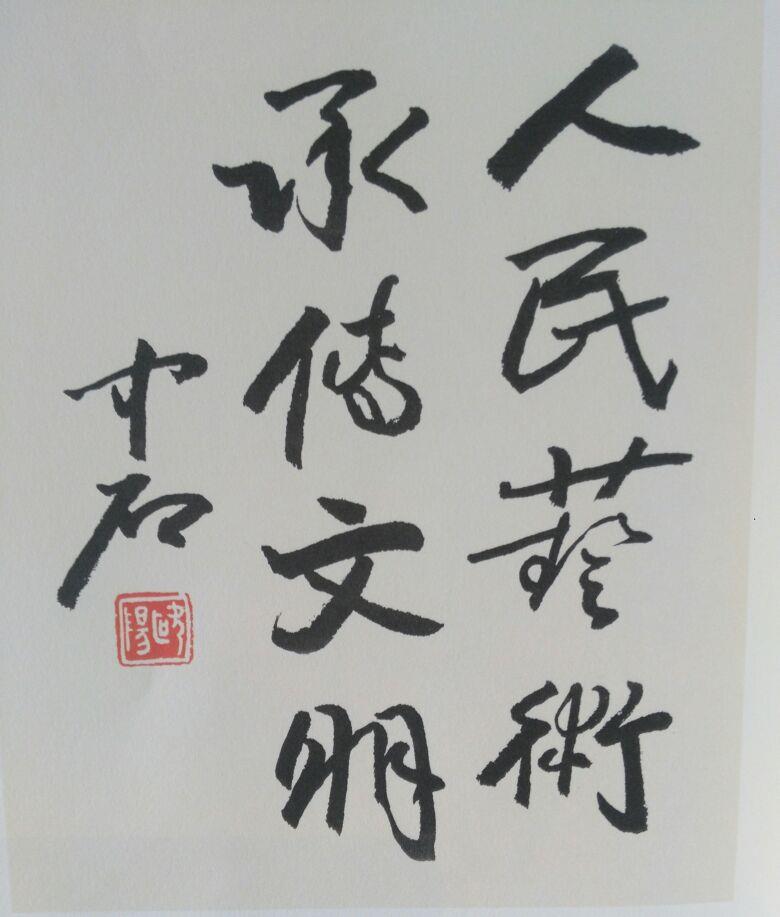 人民藝術
承傳文明
中石
歐陽